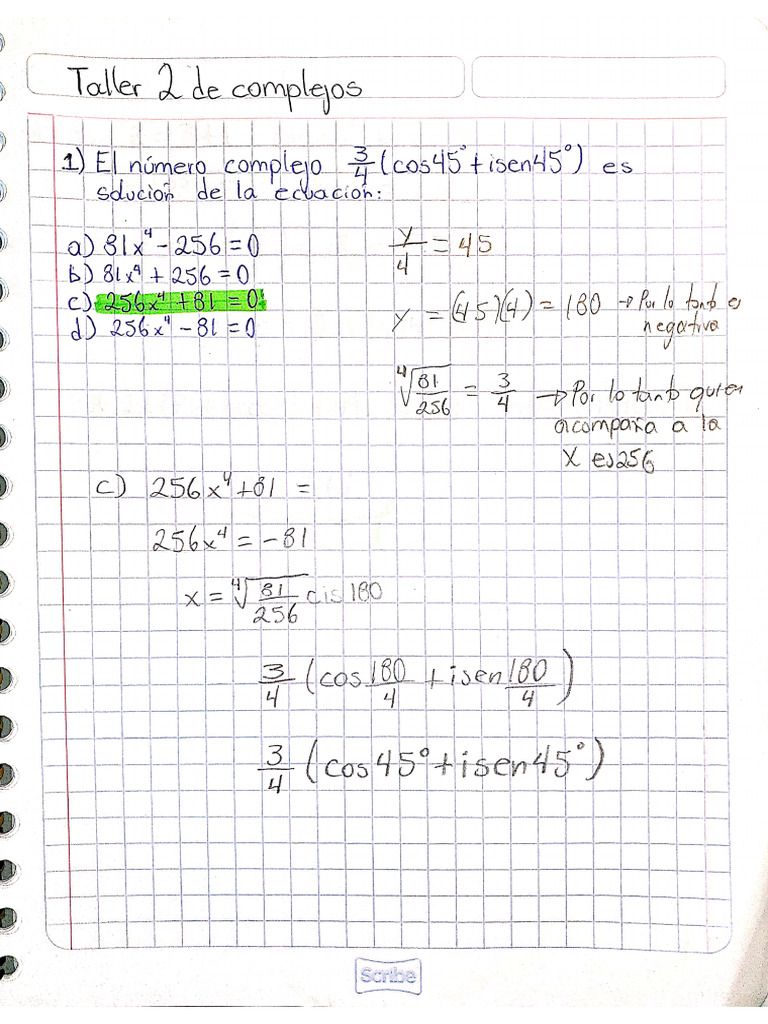 Taller 2 de complejos
1) El número complejo 3/4 (cos45° + isen45°) es
solución de la ecuación:
a) 81x⁴ - 256 = 0
b) 81x⁴ + 256 = 0
c) 256x⁴ + 81 = 0
d) 256x⁴ - 81 = 0
y/4 = 45
y = (45)(4) = 180 → Por lo tanto e
negativa
⁴√(81/256) = 3/4 → Por lo tanto quien
acompaña a la
X es 256
c) 256x⁴ + 81 =
256x⁴ = -81
x = ⁴√(81/256) cis 180
3/4 (cos 180/4 + isen 180/4)
3/4 (cos45° + isen45°)
Scribe